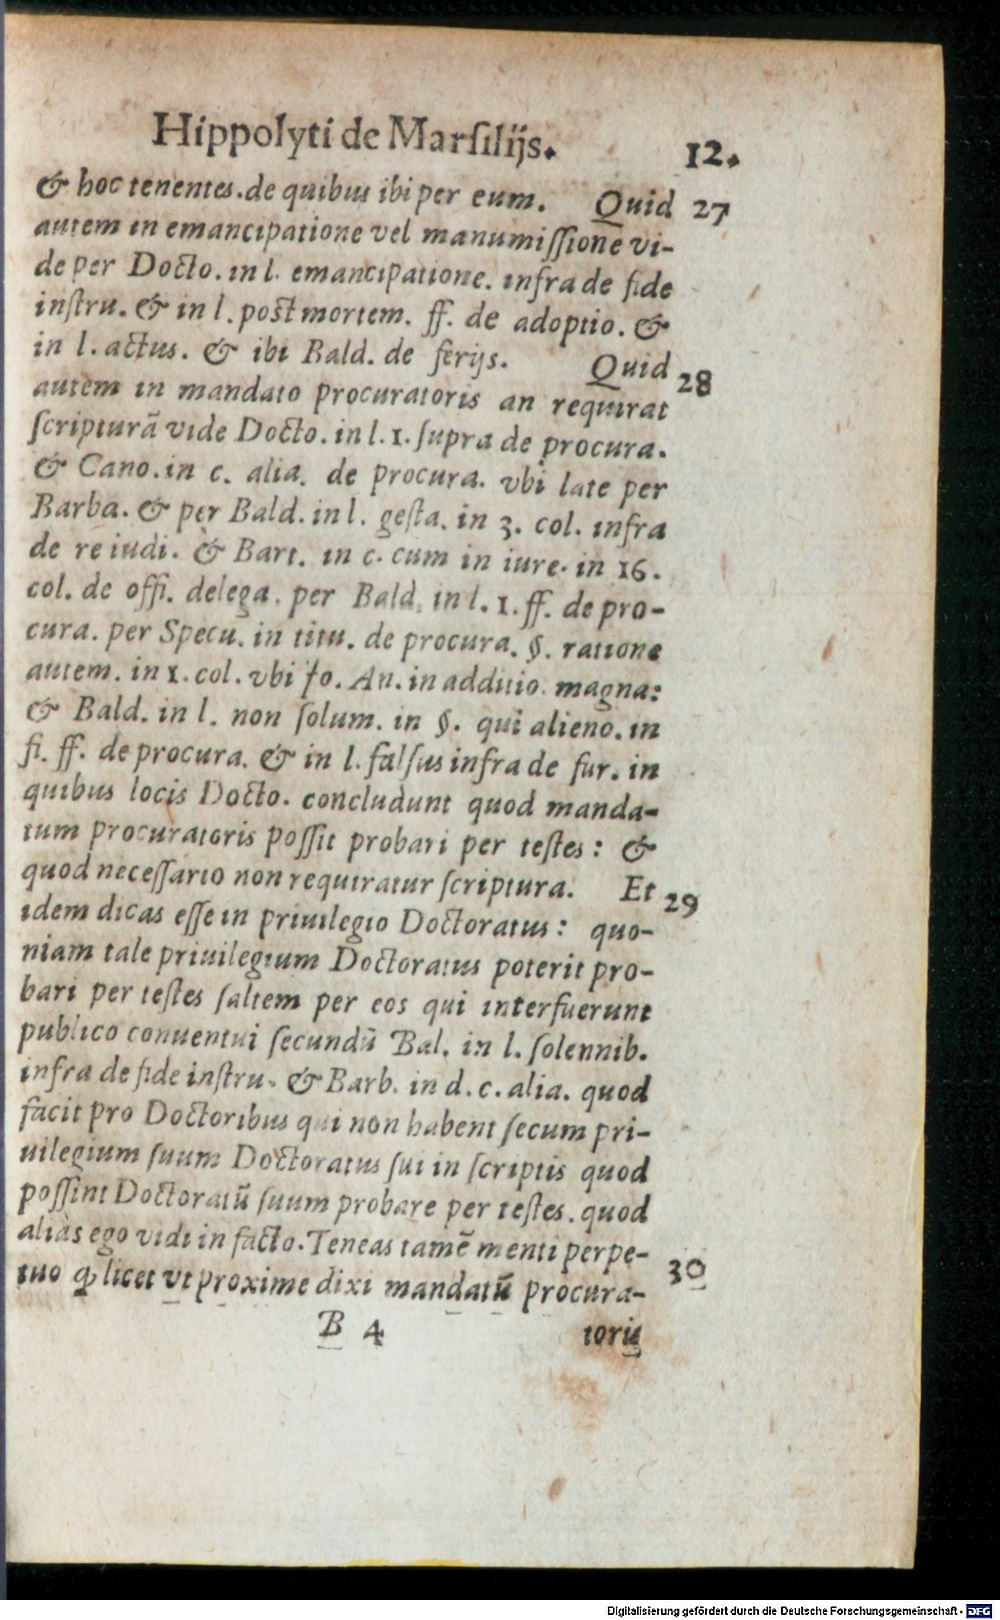 Hippolyti de Marſilijs. 12.
& hoc tenentes. de quibus ibi per eum. Quid 27
autem in emancipatione vel manumiſſione vi-
de per Docto. in l. emancipatione. infra de fide
inſtru. & in l. poſt mortem. ff. de adoptio. &
in l. actus. & ibi Bald. de ferijs. Quid 28
autem in mandato procuratoris an requirat
ſcripturā vide Docto. in l. 1. ſupra de procura.
& Cano. in c. alia. de procura. vbi late per
Barba. & per Bald. in l. geſta. in 3. col. infra
de re iudi. & Bart. in c. cum in iure. in 16.
col. de offi. delega. per Bald. in l. 1. ff. de pro-
cura. per Specu. in titu. de procura. §. ratione
autem. in 1. col. vbi Io. An. in additio. magna:
& Bald. in l. non ſolum. in §. qui alieno. in
fi. ff. de procura. & in l. falſus infra de fur. in
quibus locis Docto. concludunt quod manda-
tum procuratoris poſſit probari per teſtes: &
quod neceſſario non requiratur ſcriptura. Et 29
idem dicas eſſe in priuilegio Doctoratus: quo-
niam tale priuilegium Doctoratus poterit pro-
bari per teſtes ſaltem per eos qui interfuerunt
publico conuentui ſecundū Bal. in l. ſolennib.
infra de fide inſtru. & Barb. in d. c. alia. quod
facit pro Doctoribus qui non habent ſecum pri-
uilegium ſuum Doctoratus ſui in ſcriptis quod
poſſint Doctoratū ſuum probare per teſtes. quod
aliàs ego vidi in facto. Teneas tamē menti perpe-
tuo ꝙ licet vt proxime dixi mandatū procura- 30
B 4 toris
Digitalisierung gefördert durch die Deutsche Forschungsgemeinschaft - DFG